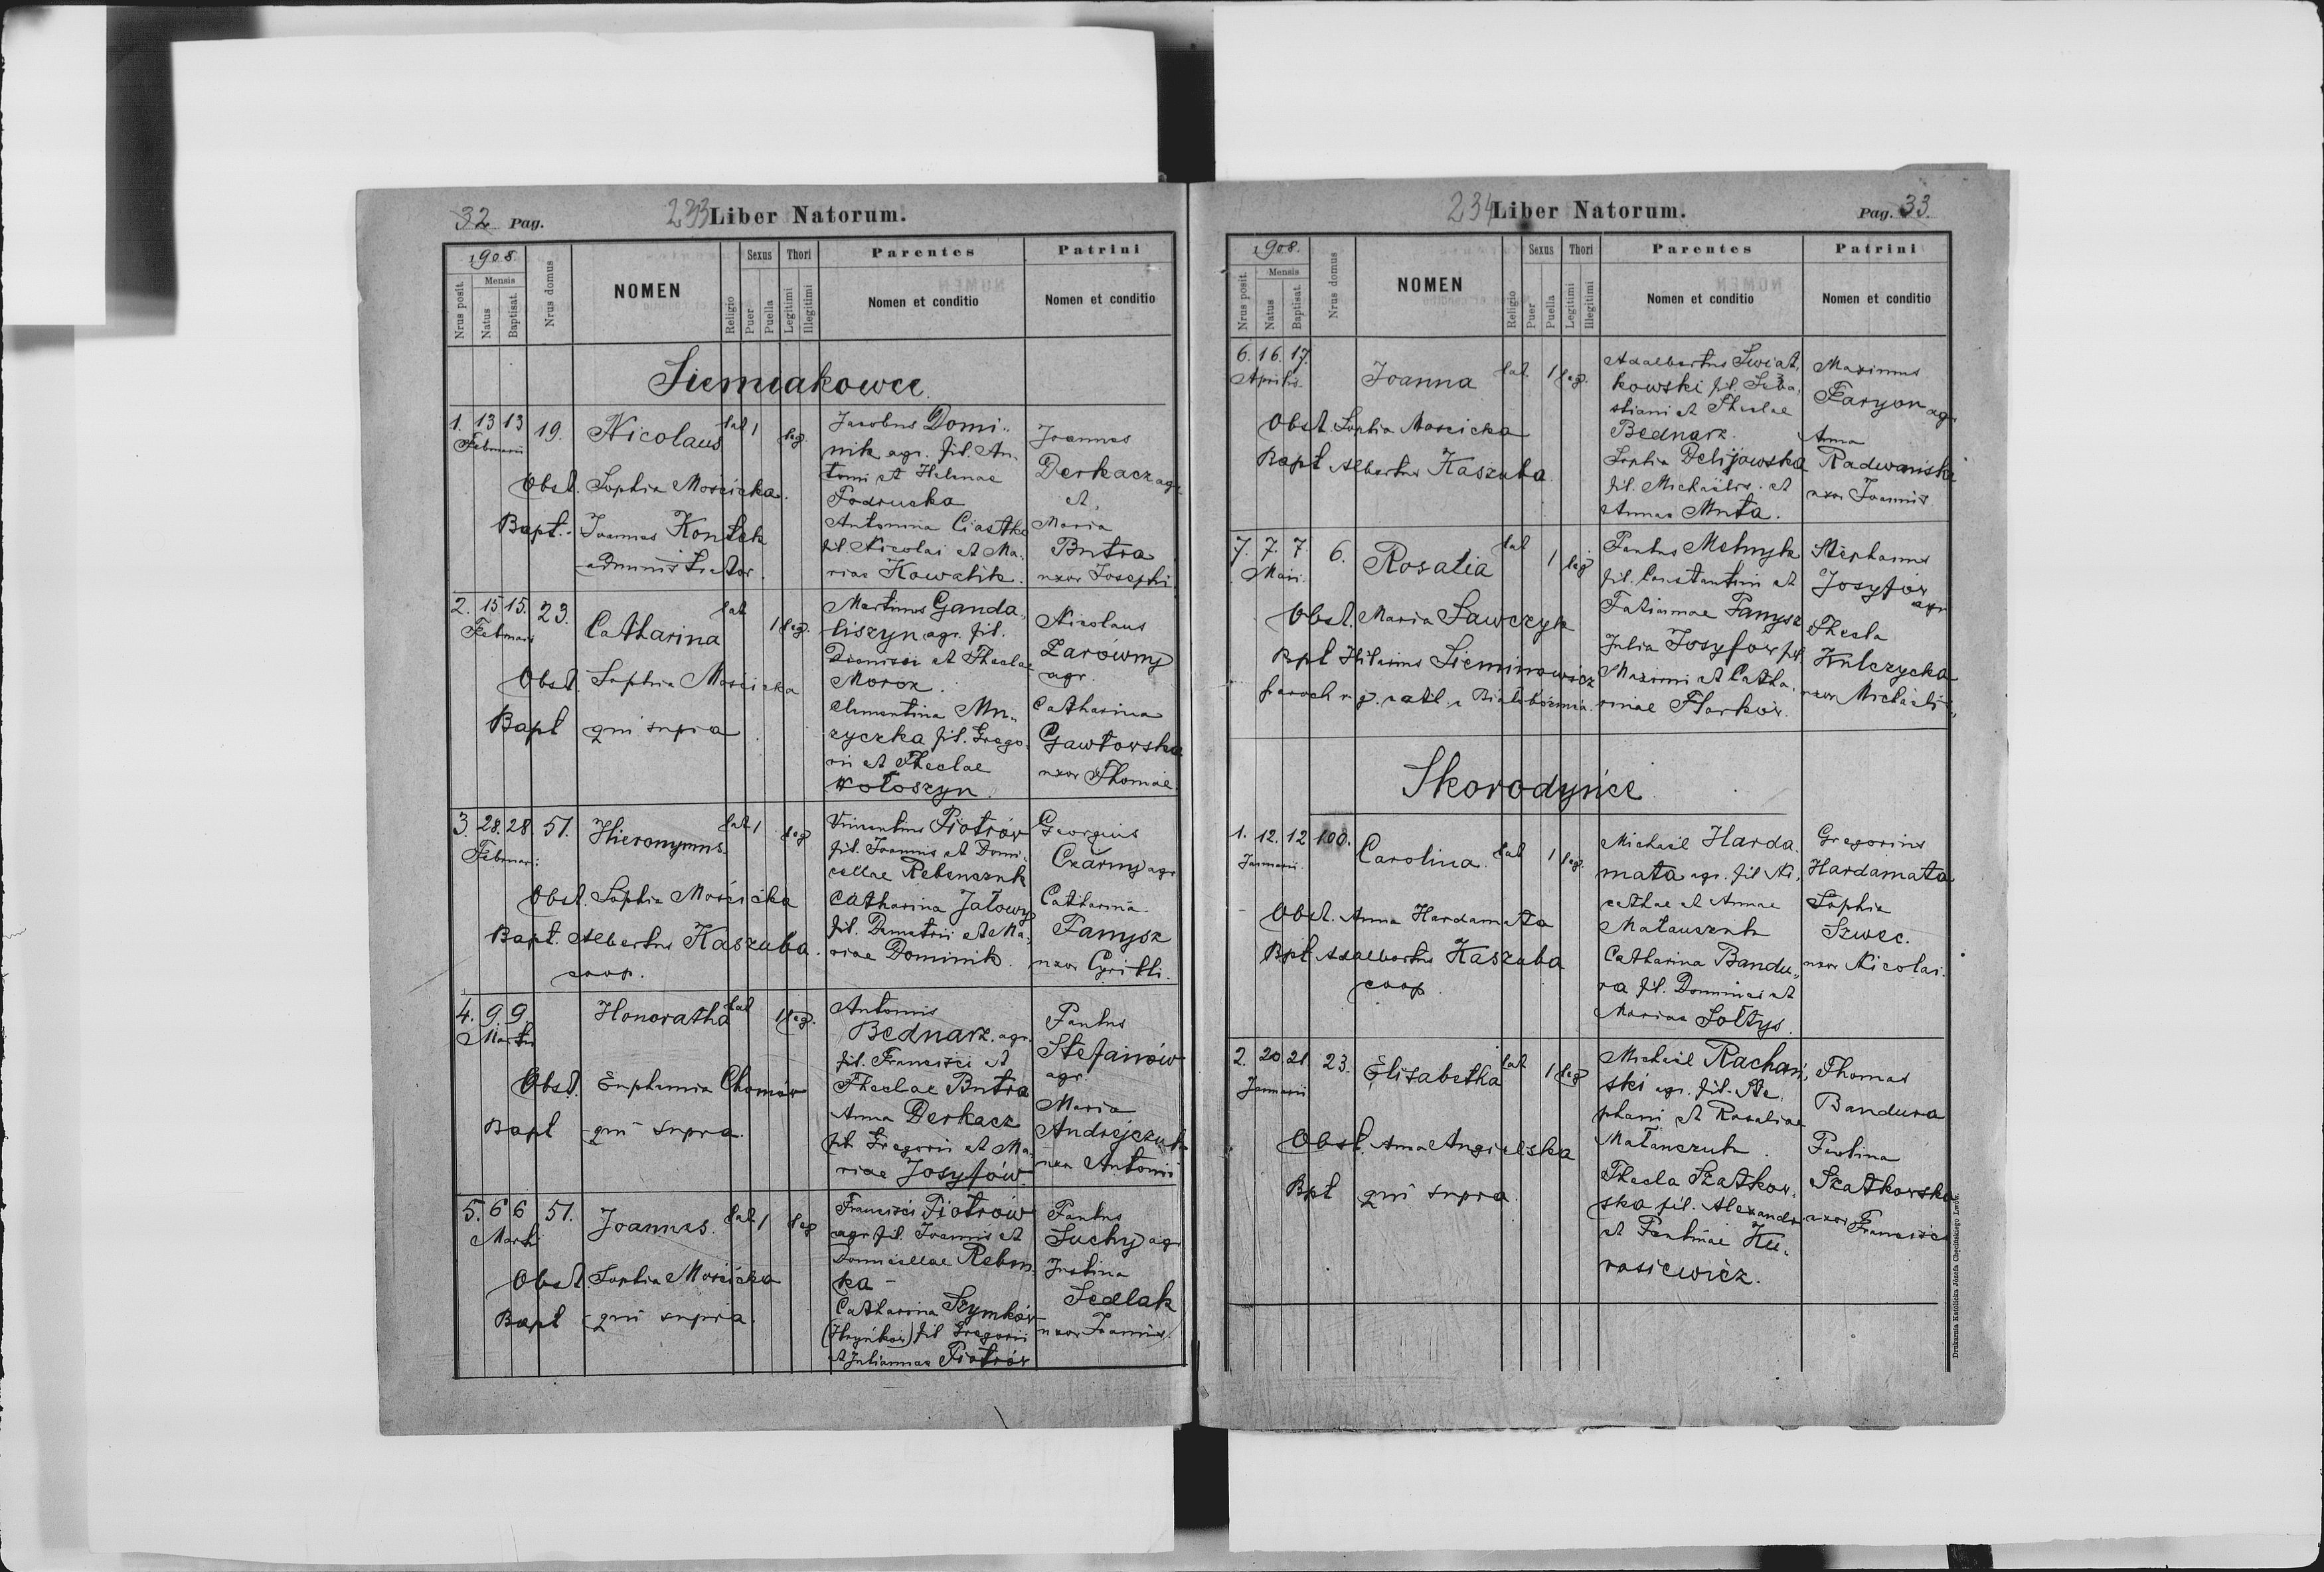 32 Pag.
233 Liber Natorum.
1908.
Nrus posit.
Mensis
Natus
Baptisat.
Nrus domus
NOMEN
Religio
Sexus
Puer
Puella
Thori
Legitimi
Illegitimi
Parentes
Nomen et conditio
Patrini
Nomen et conditio
Siemiakowce
1. 13 13 19. Nicolaus lat 1 leg.
Februarii
Obst. Sophia Mościcka.
Bapt. Joannes Kontek
administrator.
Jacobus Domi-
nik agr. fil. An-
tonii et Helenae
Podrucka
Antonina Ciastko
fil. Nicolai et Ma-
riae Kowalik.
Joannes
Derkacz agr.
et
Maria
Butra
uxor Josephi
2. 15 15. 23. Catharina lat 1 leg.
Februarii
Obst. Sophia Mościcka
Bapt qui supra
Martinus Ganda-
liszyn agr. fil.
Dionisii et Theclae
Moroz.
Clementina Mu-
zyczka fil. Grego-
rii et Theclae
Wołoszyn.
Nicolaus
Zarówny
agr.
Catharina
Gawłowska
uxor Thomae.
3. 28. 28. 51. Hieronymus. lat 1 leg
Februar:
Obst. Sophia Mościcka
Bapt. Albertus Kaszuba.
coop.
Vincentius Piotrów
fil. Joannis et Domi-
cellae Rebenczuk
Catharina Jałowy
fil. Demetrii et Ma-
riae Dominik.
Georgius
Czarny agr
Catharina
Panysz
uxor Cyrilli.
4. 9 9. Honoratha lat 1 leg.
Martii
Obst. Euphemia Chomów
Bapt qui supra.
Antonius
Bednarz. agr.
fil. Francisci et
Theclae Butra
Anna Derkacz
fil. Gregorii et Ma-
riae Josyfów.
Paulus
Stefanów
agr.
Maria
Andrejczuk
uxor Antonii
5. 6 6 51. Joannes. lat. 1 leg
Martii
Obst. Sophia Mościcka
Bapt qui supra.
Francisci Piotrów
agr. fil. Joannis et
Domicellae Reben-
ka
Catharina Szymków
(Hryńków) fil Gregorii
et Juliannae Piotrów
Paulus
Suchy agr
Justina
Sedlak
uxor Joannis.
234 Liber Natorum.
Pag. 33.
1908.
Nrus posit.
Mensis
Natus
Baptisat.
Nrus domus
NOMEN
Religio
Sexus
Puer
Puella
Thori
Legitimi
Illegitimi
Parentes
Nomen et conditio
Patrini
Nomen et conditio
6. 16. 17. Joanna lat. 1 leg.
Aprilis.
Obst. Sophia Mościcka
Bapt Albertus Kaszuba.
Adalbertus Świat-
kowski fil. Seba-
stiani et Theclae
Bednarz.
Sophia Delijowska
fil. Michaëlis et
Annae Muta.
Maximus
Faryon agr
Anna
Radwaniska
uxor Joannis
7. 7. 7 6. Rosalia lat 1 leg
Maii.
Obst. Maria Sawczyk
Bpt Hilarius Sieminowicz
paroch r. g. catl. z Białobożnica.
Paulus Melnyk
fil. Constantini et
Tatiannae Panysz
Julia Josyfów fil.
Maximi et Catha-
rinae Harków.
Stephanus
Josyfów
agr
Thecla
Kulczycka
uxor Michaëlis
Skorodyńce
1. 12. 12 100. Carolina. lat 1 leg.
Januarii.
Obst. Anna Hardamata
Bpt Adalbertus Kaszuba
coop.
Michaël Harda-
mata agr. fil Ni-
cethae et Annae
Matauszuk
Catharina Bandu-
ra fil. Dominici et
Mariae Sołtys.
Gregorius
Hardamata
Sophia
Szwec.
uxor Nicolai.
2. 20 21 23. Elisabetha lat 1 leg
Januarii
Obst. Anna Angielska
Bpt qui supra.
Michaël Rachań-
ski agr. fil. Ste-
phani et Rosaliae
Matanczuk.
Thecla Szatkow-
ska fil. Alexandri
et Paulinae Ku-
rasiewicz.
Thomas
Bandura
Paulina
Szatkowska
uxor Francisci
Drukarnia Katolicka Józefa Chęcińskiego Lwów.